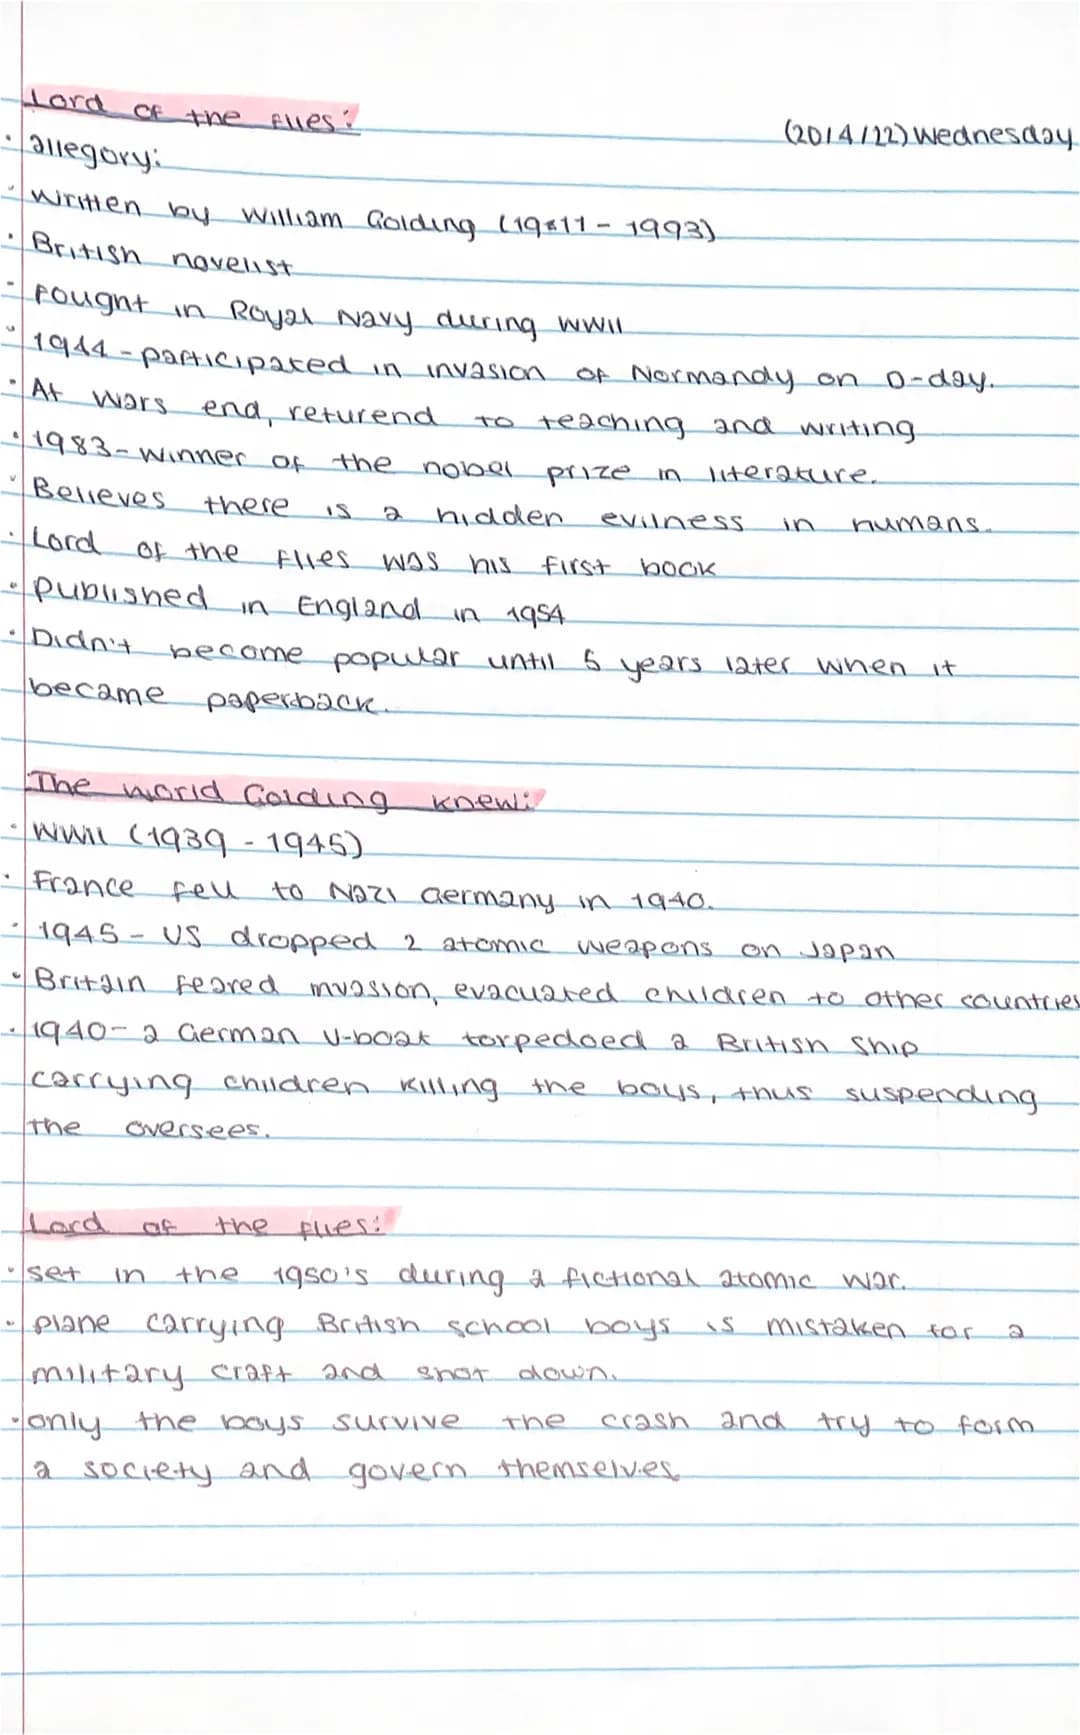 Lord of the flies:
(2014/22) Wednesday
• allegory:
• Written by William Golding (1911 - 1993)
• British novelist
• Fought in Royal Navy during WWII
• 1944 - participated in invasion of Normandy on D-day.
• At wars end, returend to teaching and writing
• 1983 - winner of the nobel prize in literature.
• Believes there is a hidden evilness in humans.
• Lord of the flies was his first book
• Published in England in 1954
• Didn't become popular until 5 years later when it
became paperback.
The world Golding knew:
• WWII (1939 - 1945)
• France fell to Nazi Germany in 1940.
• 1945 - US dropped 2 atomic weapons on Japan
• Britain feared invasion, evacuated children to other countries
• 1940 - a German U-boat torpedoed a British ship
carrying children killing the boys, thus suspending
the oversees.
Lord of the flies:
• set in the 1950's during a fictional atomic war.
• plane carrying British school boys is mistaken for a
military craft and shot down.
• only the boys survive the crash and try to form
a society and govern themselves